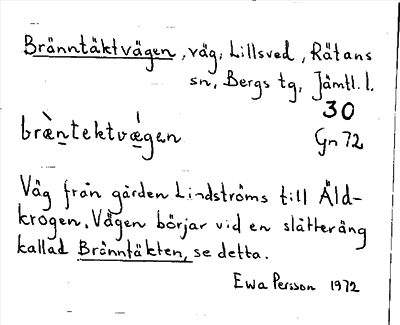 Bränntäktvägen, väg, Lillsved, Rätans
sn, Bergs tg, Jämtl. l.
30
bræ̀ntektvǽgen Gn 72
Väg från gården Lindströms till Äld-
krogen. Vägen börjar vid en slätteräng
kallad Bränntäkten, se detta.
Ewa Persson 1972